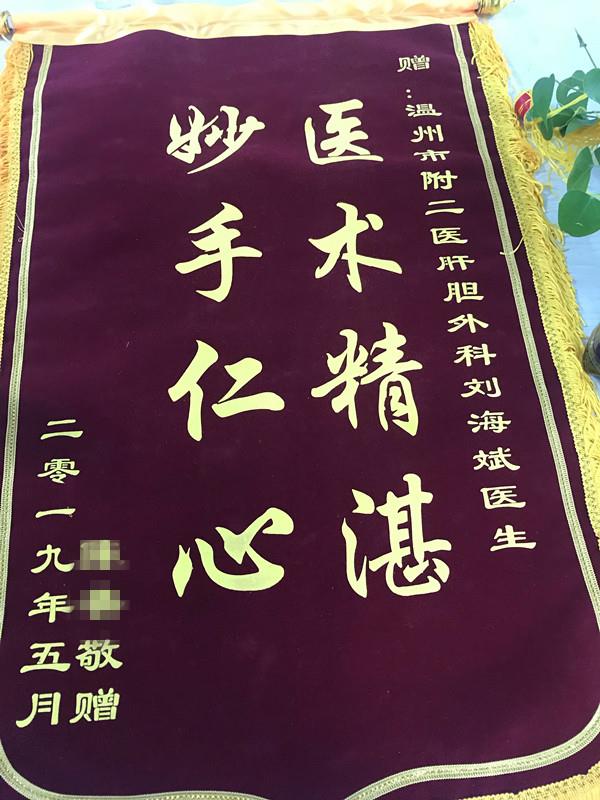 赠：温州市附二医肝胆外科刘海斌医生
医术精湛
妙手仁心
敬赠
二零一九年五月